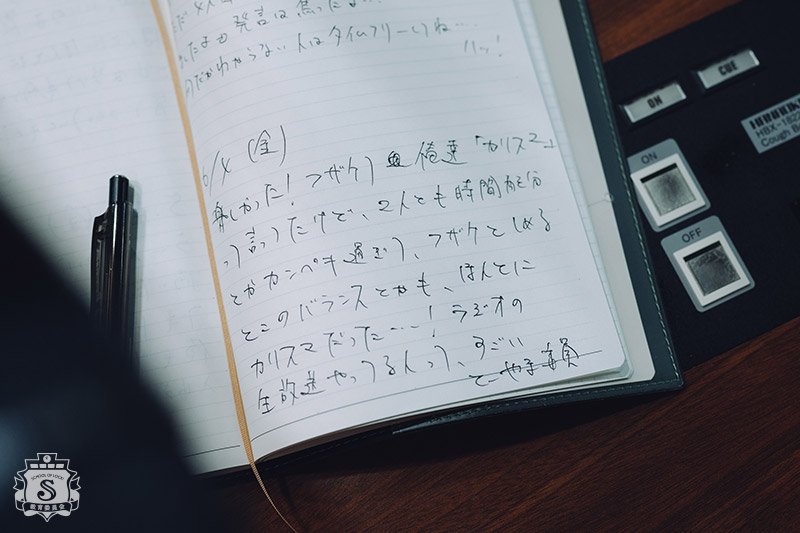 だ
たたまも発言は焦ったよ
のだかわからない人はタイムフリーしてね…
ハッ!
6/4 (金)
楽しかった! フザケ 俺達「カリスマ」
って言ったけど、2人とも時間配分
とかカンペも通り、フザケとしめる
とこのバランスとかも、ほんとに
カリスマだった…! ラジオの
生放送やってる人って、すごい
ON
CUE
HBX-1822
Cough B
ON
OFF
SCHOOL OF LOCK!
S
教育委員会